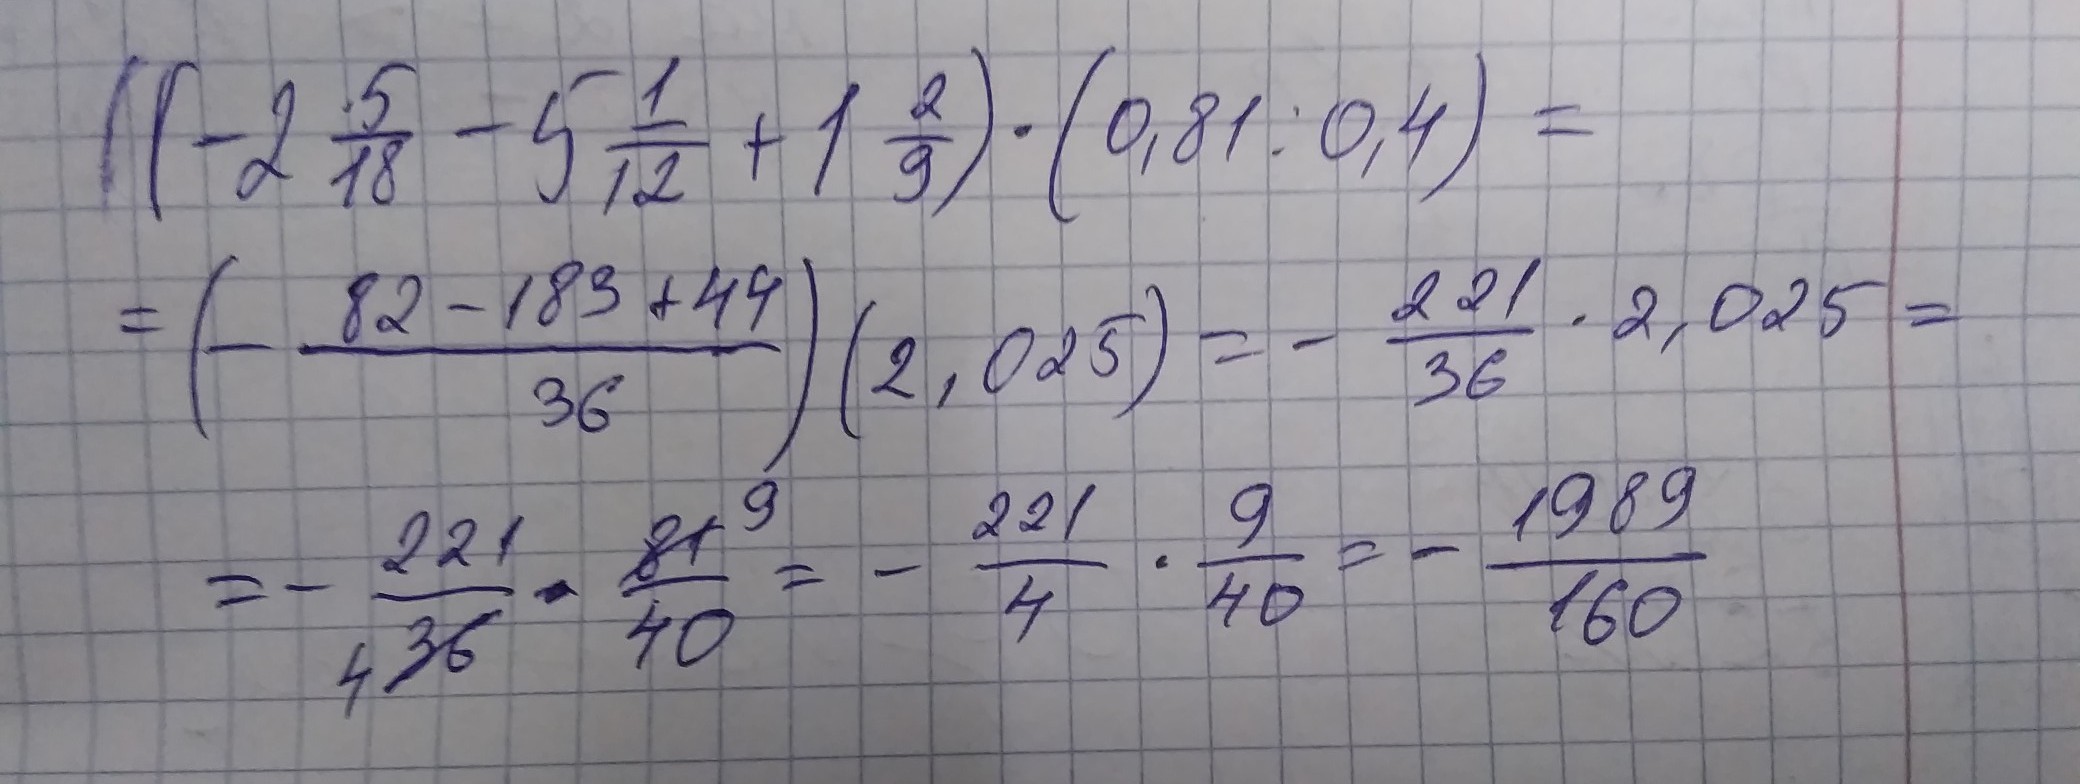 ((-2 5/18 - 5 1/12 + 1 2/9) · (0,81 : 0,4) =
= (- 82 - 183 + 44 / 36) (2,025) = - 221/36 · 2,025 =
= - 221/36 4 · 81/40 9 = - 221/4 · 9/40 = - 1989/160